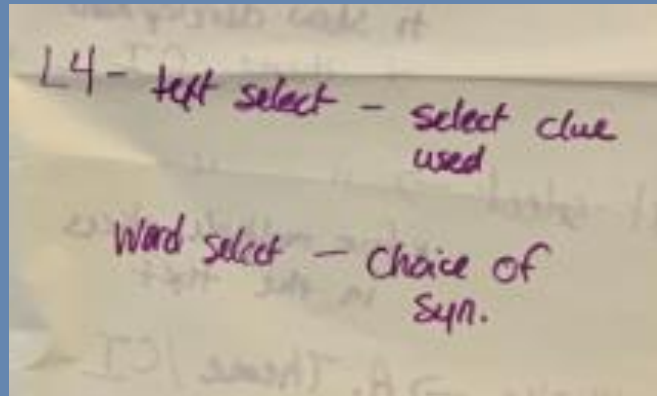 L4 - text select - select clue
used
Word select - Choice of
Syn.